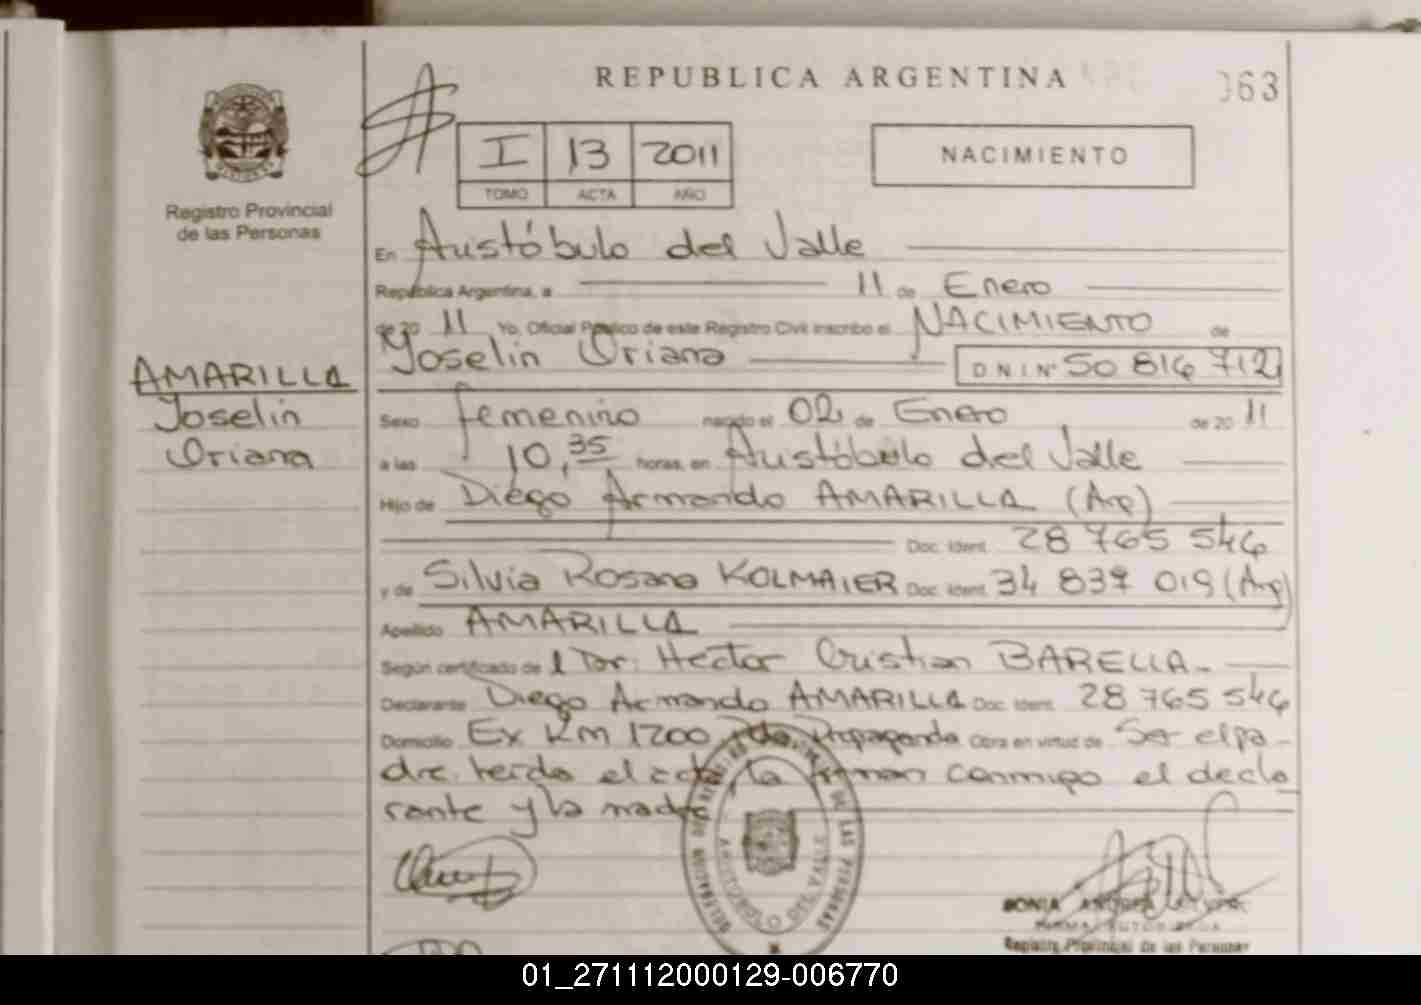 REPUBLICA ARGENTINA
063
Registro Provincial
de las Personas
I 13 2011
TOMO ACTA AÑO
NACIMIENTO
En Aristóbulo del Valle
República Argentina, a 11 de Enero
de 20 11 Yo, Oficial Público de este Registro Civil inscribo el NACIMIENTO de
Yoselin Oriana DNI Nº 50 816 712
AMARILLA
Yoselin
Oriana
Sexo femenino nacido el 02 de Enero de 20 11
a las 10,35 horas, en Aristóbulo del Valle
Hijo de Diego Armando AMARILLA (Arg)
Doc. Ident. 28 765 546
y de Silvia Rosana KOLMAIER Doc. Ident. 34 837 019 (Arg)
Apellido AMARILLA
Según certificado de l Dr. Hector Cristian BARELLA
Declarante Diego Armando AMARILLA Doc. Ident. 28 765 546
Domicilio Ex Km 1200 Propaganda Obra en virtud de Ser el pa-
dre. leida el acta la firman conmigo el decla
rante y la madre
DE LAS PERSONAS
ARISTOBULO DEL VALLE
SONIA ANDREA
Registro Provincial de las Personas
01_271112000129-006770